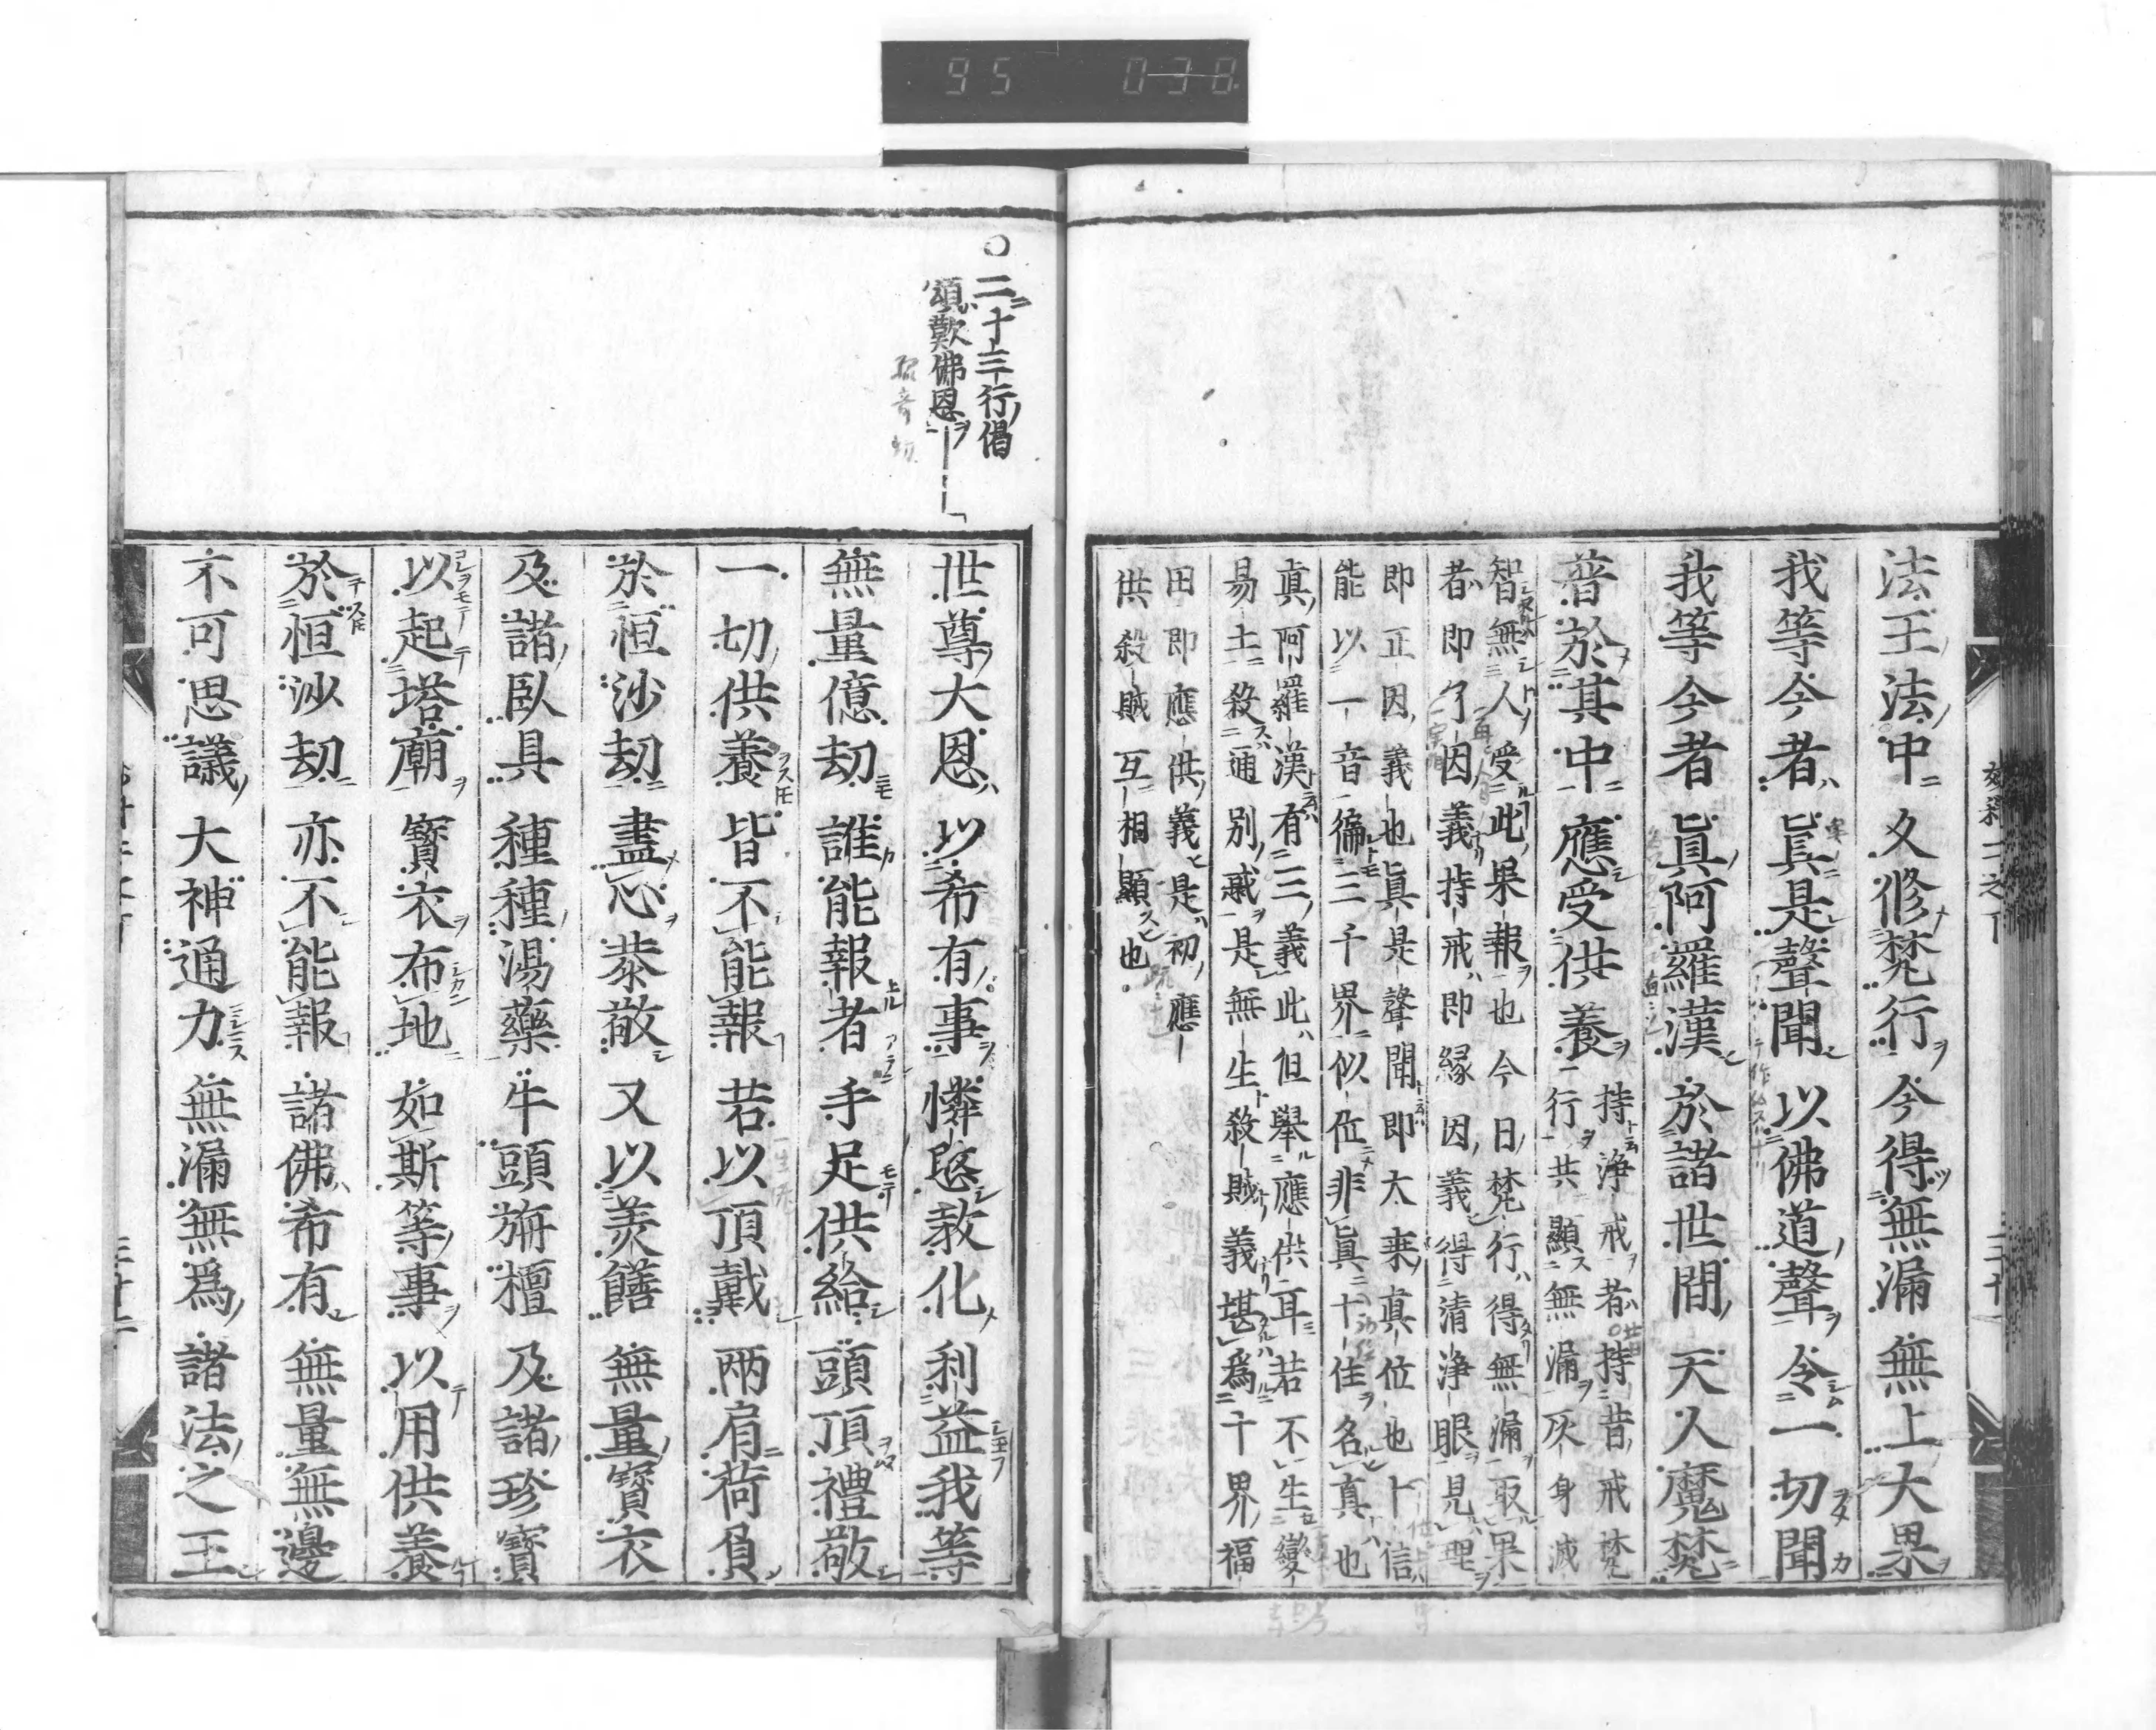 95 038
法王法中久修梵行今得無漏無上大果
我等今者真是聲聞以佛道聲令一切聞
我等今者真阿羅漢於諸世間天人魔梵
普於其中應受供養
持淨戒者持昔戒梵
行共顯無漏灰身滅
智無人受此果報也今日梵行得無漏取果
者即了因義持戒即緣因義得清淨眼見理
即正因義也真是聲聞即大乘真位也卜信
能以一音徧三千界似位非真十住名真也
真阿羅漢有三義此但舉應供耳若不生變
易土殺通別惑是無生殺賊義堪為十界福
田即應供義是初應
供殺賊互相顯也
二十三行偈
頌歎佛恩
世尊大恩以希有事憐愍敎化利益我等
無量億劫誰能報者手足供給頭頂禮敬
一切供養皆不能報若以頂戴兩肩荷負
於恒沙劫盡心恭敬又以美饍無量寶衣
及諸臥具種種湯藥牛頭旃檀及諸珍寶
以起塔廟寶衣布地如斯等事以用供養
於恒沙劫亦不能報諸佛希有無量無邊
不可思議大神通力無漏無爲諸法之王